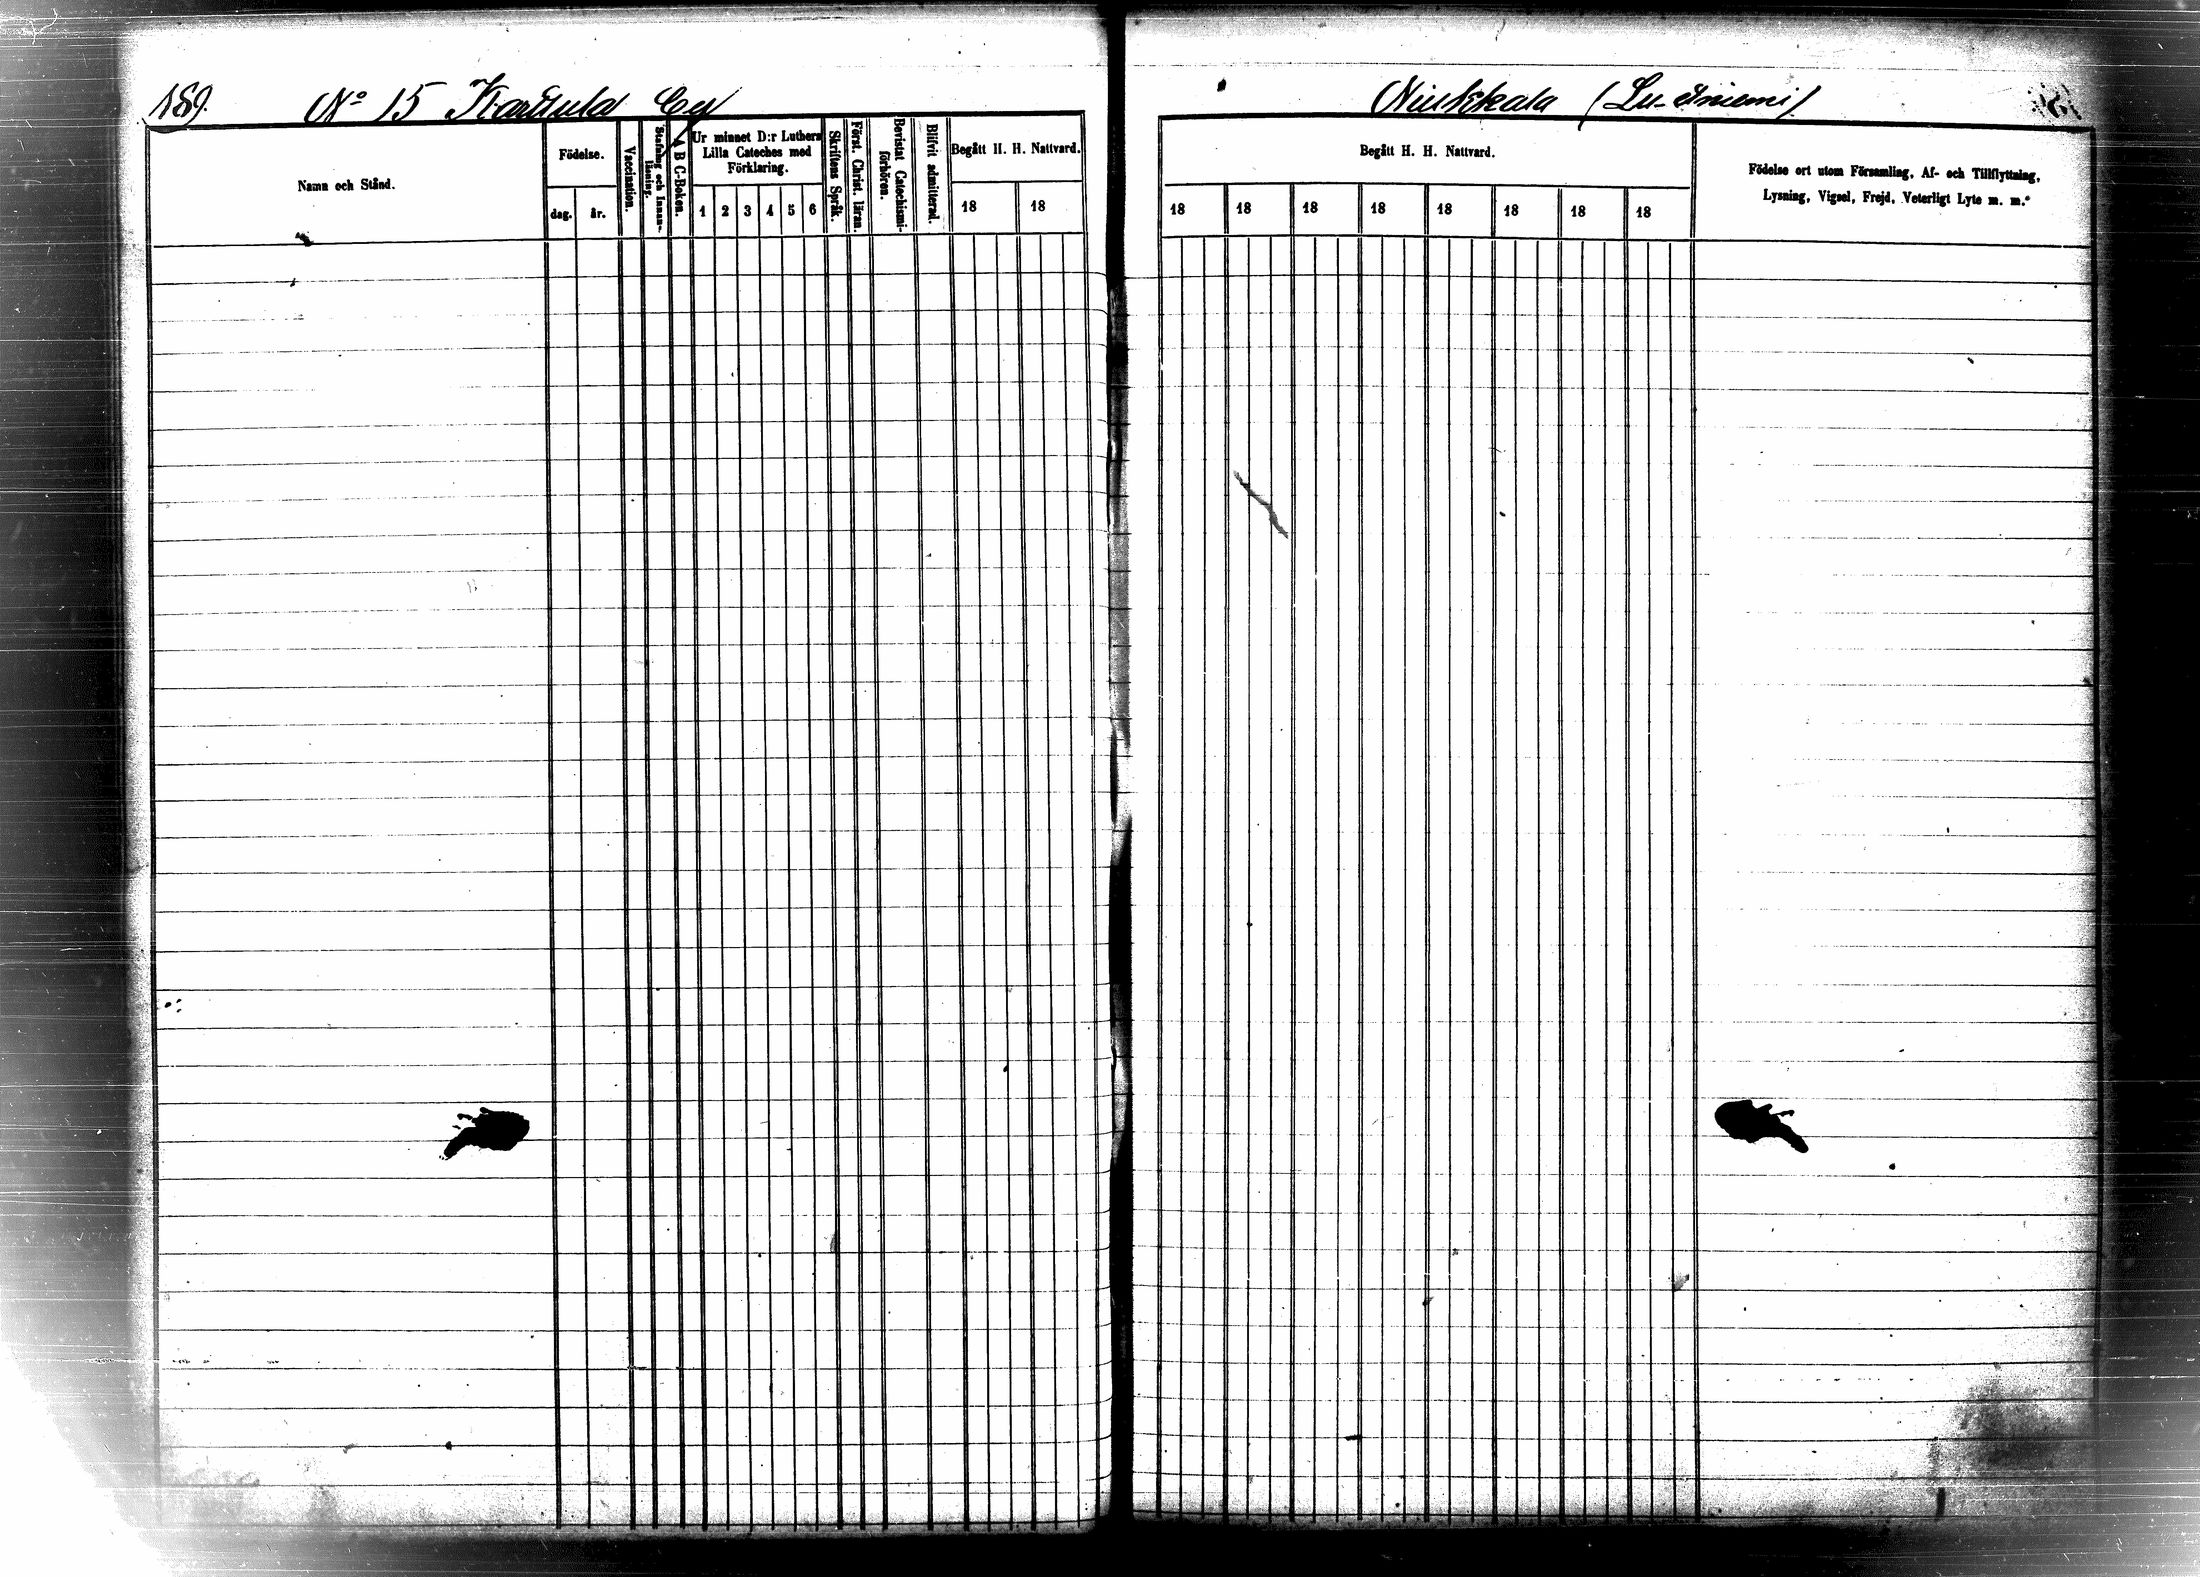 189.
No 15 Karttula By
Niukkala (Lu-
Namn och Stånd.
Födelse.
dag.
år.
Vaccination.
Stafning och Innan-
läsning.
A B C-Boken.
Ur minnet D:r Luthers
Lilla Cateches med
Förklaring.
1 2 3 4 5 6
Skriftens Språk.
Först. Christ. läran.
Bevistat Catechismi-
förhören.
Blifvit admitterad.
Begått H. H. Nattvard.
18 18
Begått H. H. Nattvard.
18 18 18 18 18 18 18 18
Födelse ort utom Församling, Af- och Tillflyttning,
Lysning, Vigsel, Frejd, Veterligt Lyte m. m.